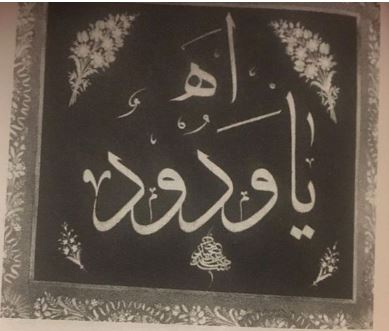 اه
يا ودود